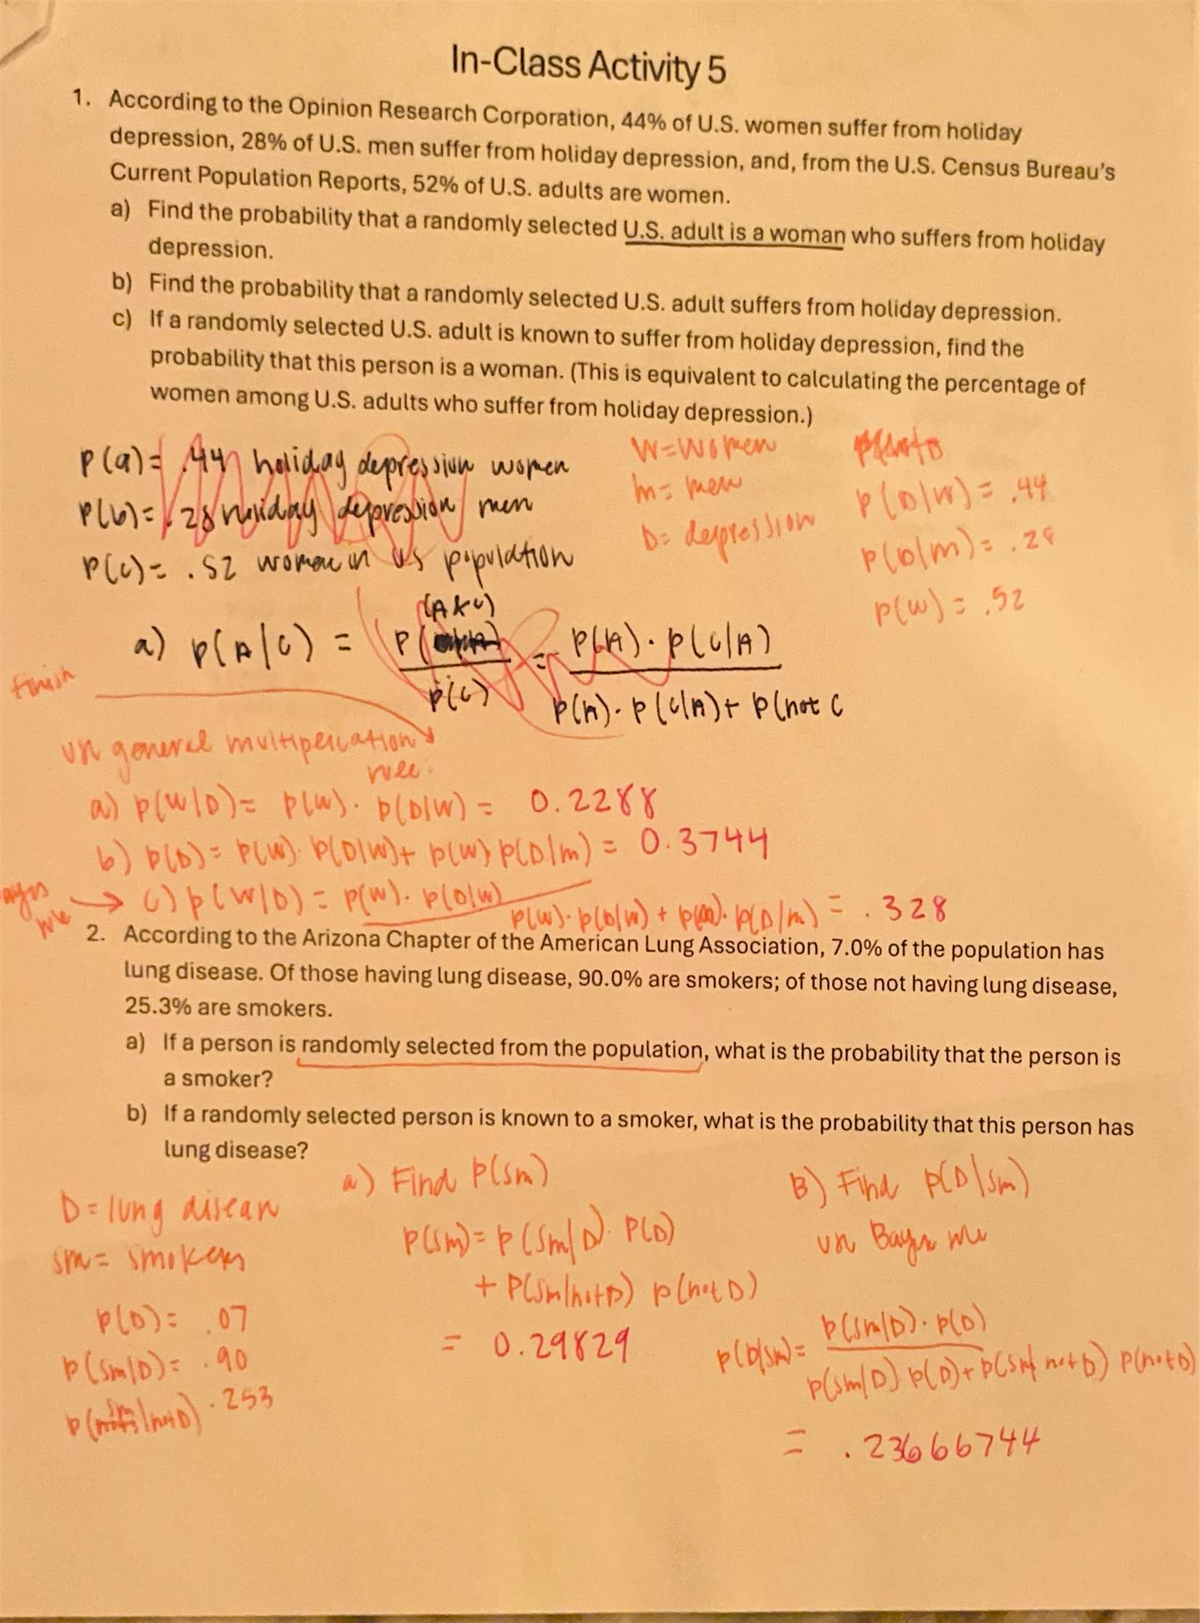 In-Class Activity 5
1. According to the Opinion Research Corporation, 44% of U.S. women suffer from holiday
depression, 28% of U.S. men suffer from holiday depression, and, from the U.S. Census Bureau's
Current Population Reports, 52% of U.S. adults are women.
a) Find the probability that a randomly selected U.S. adult is a woman who suffers from holiday
depression.
b) Find the probability that a randomly selected U.S. adult suffers from holiday depression.
c) If a randomly selected U.S. adult is known to suffer from holiday depression, find the
probability that this person is a woman. (This is equivalent to calculating the percentage of
women among U.S. adults who suffer from holiday depression.)
P(a)= .44 holiday depression women
P(b)= .28 holiday depression men
P(c)= .52 women in US population
W=women
m= men
D= depression
P(D/W) = .44
P(D/m) = .28
P(W) = .52
(A&C)
a) P(A/C) = P( ) / P(C) = P(A) · P(C/A)
P(A) · P(C/A) + P(not C
finish
general multiplication
rule
a) P(W/D) = P(W) · P(D/W) = 0.2288
b) P(D) = P(W) · P(D/W) + P(W) P(D/m) = 0.3744
c) P(W/D) = P(W) · P(D/W)
P(W) · P(D/W) + P( ) · P(D/m) = .328
2. According to the Arizona Chapter of the American Lung Association, 7.0% of the population has
lung disease. Of those having lung disease, 90.0% are smokers; of those not having lung disease,
25.3% are smokers.
a) If a person is randomly selected from the population, what is the probability that the person is
a smoker?
b) If a randomly selected person is known to a smoker, what is the probability that this person has
lung disease?
D = lung disease
sm = smokers
P(D) = .07
P(sm/D) = .90
P(sm/not D) .253
a) Find P(sm)
P(sm) = P(sm/D) · P(D)
+ P(sm/not D) P(not D)
= 0.29829
B) Find P(D/sm)
P(D/sm) = P(sm/D) · P(D)
P(sm/D) P(D) + P(sm/ not D) P(not D)
= .23666744